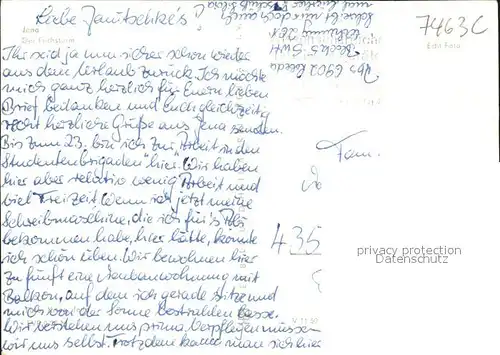 Liebe Jenutschke's
Jena
Der Fuchsturm
7463C
Echt Foto
Ihr seid ja nun sicher schon wieder
aus dem Urlaub zurück. Ich möchte
mich ganz herzlich für Euern lieben
Brief bedanken und Euch gleichzeitig
recht herzliche Grüße aus Jena senden.
Bis zum 23. bin ich zur "Arbeit in den
Studentenbrigaden" hier. Wir haben
hier aber relativ wenig Arbeit und
viel Freizeit. Wenn ich jetzt meine
Schreibmaschine, die ich für's
bekommen habe, hier hätte, könnte
ich schön üben. Wir bewohnen hier
zu fünft eine Neubauwohnung mit
Balkon, auf dem ich gerade sitze und
mich von der Sonne bestrahlen lasse.
Wir verstehen uns prima. Verpflegen müssen
wir uns selbst. Trotzdem kann man sich hier
Fam.
435
privacy protection
Datenschutz